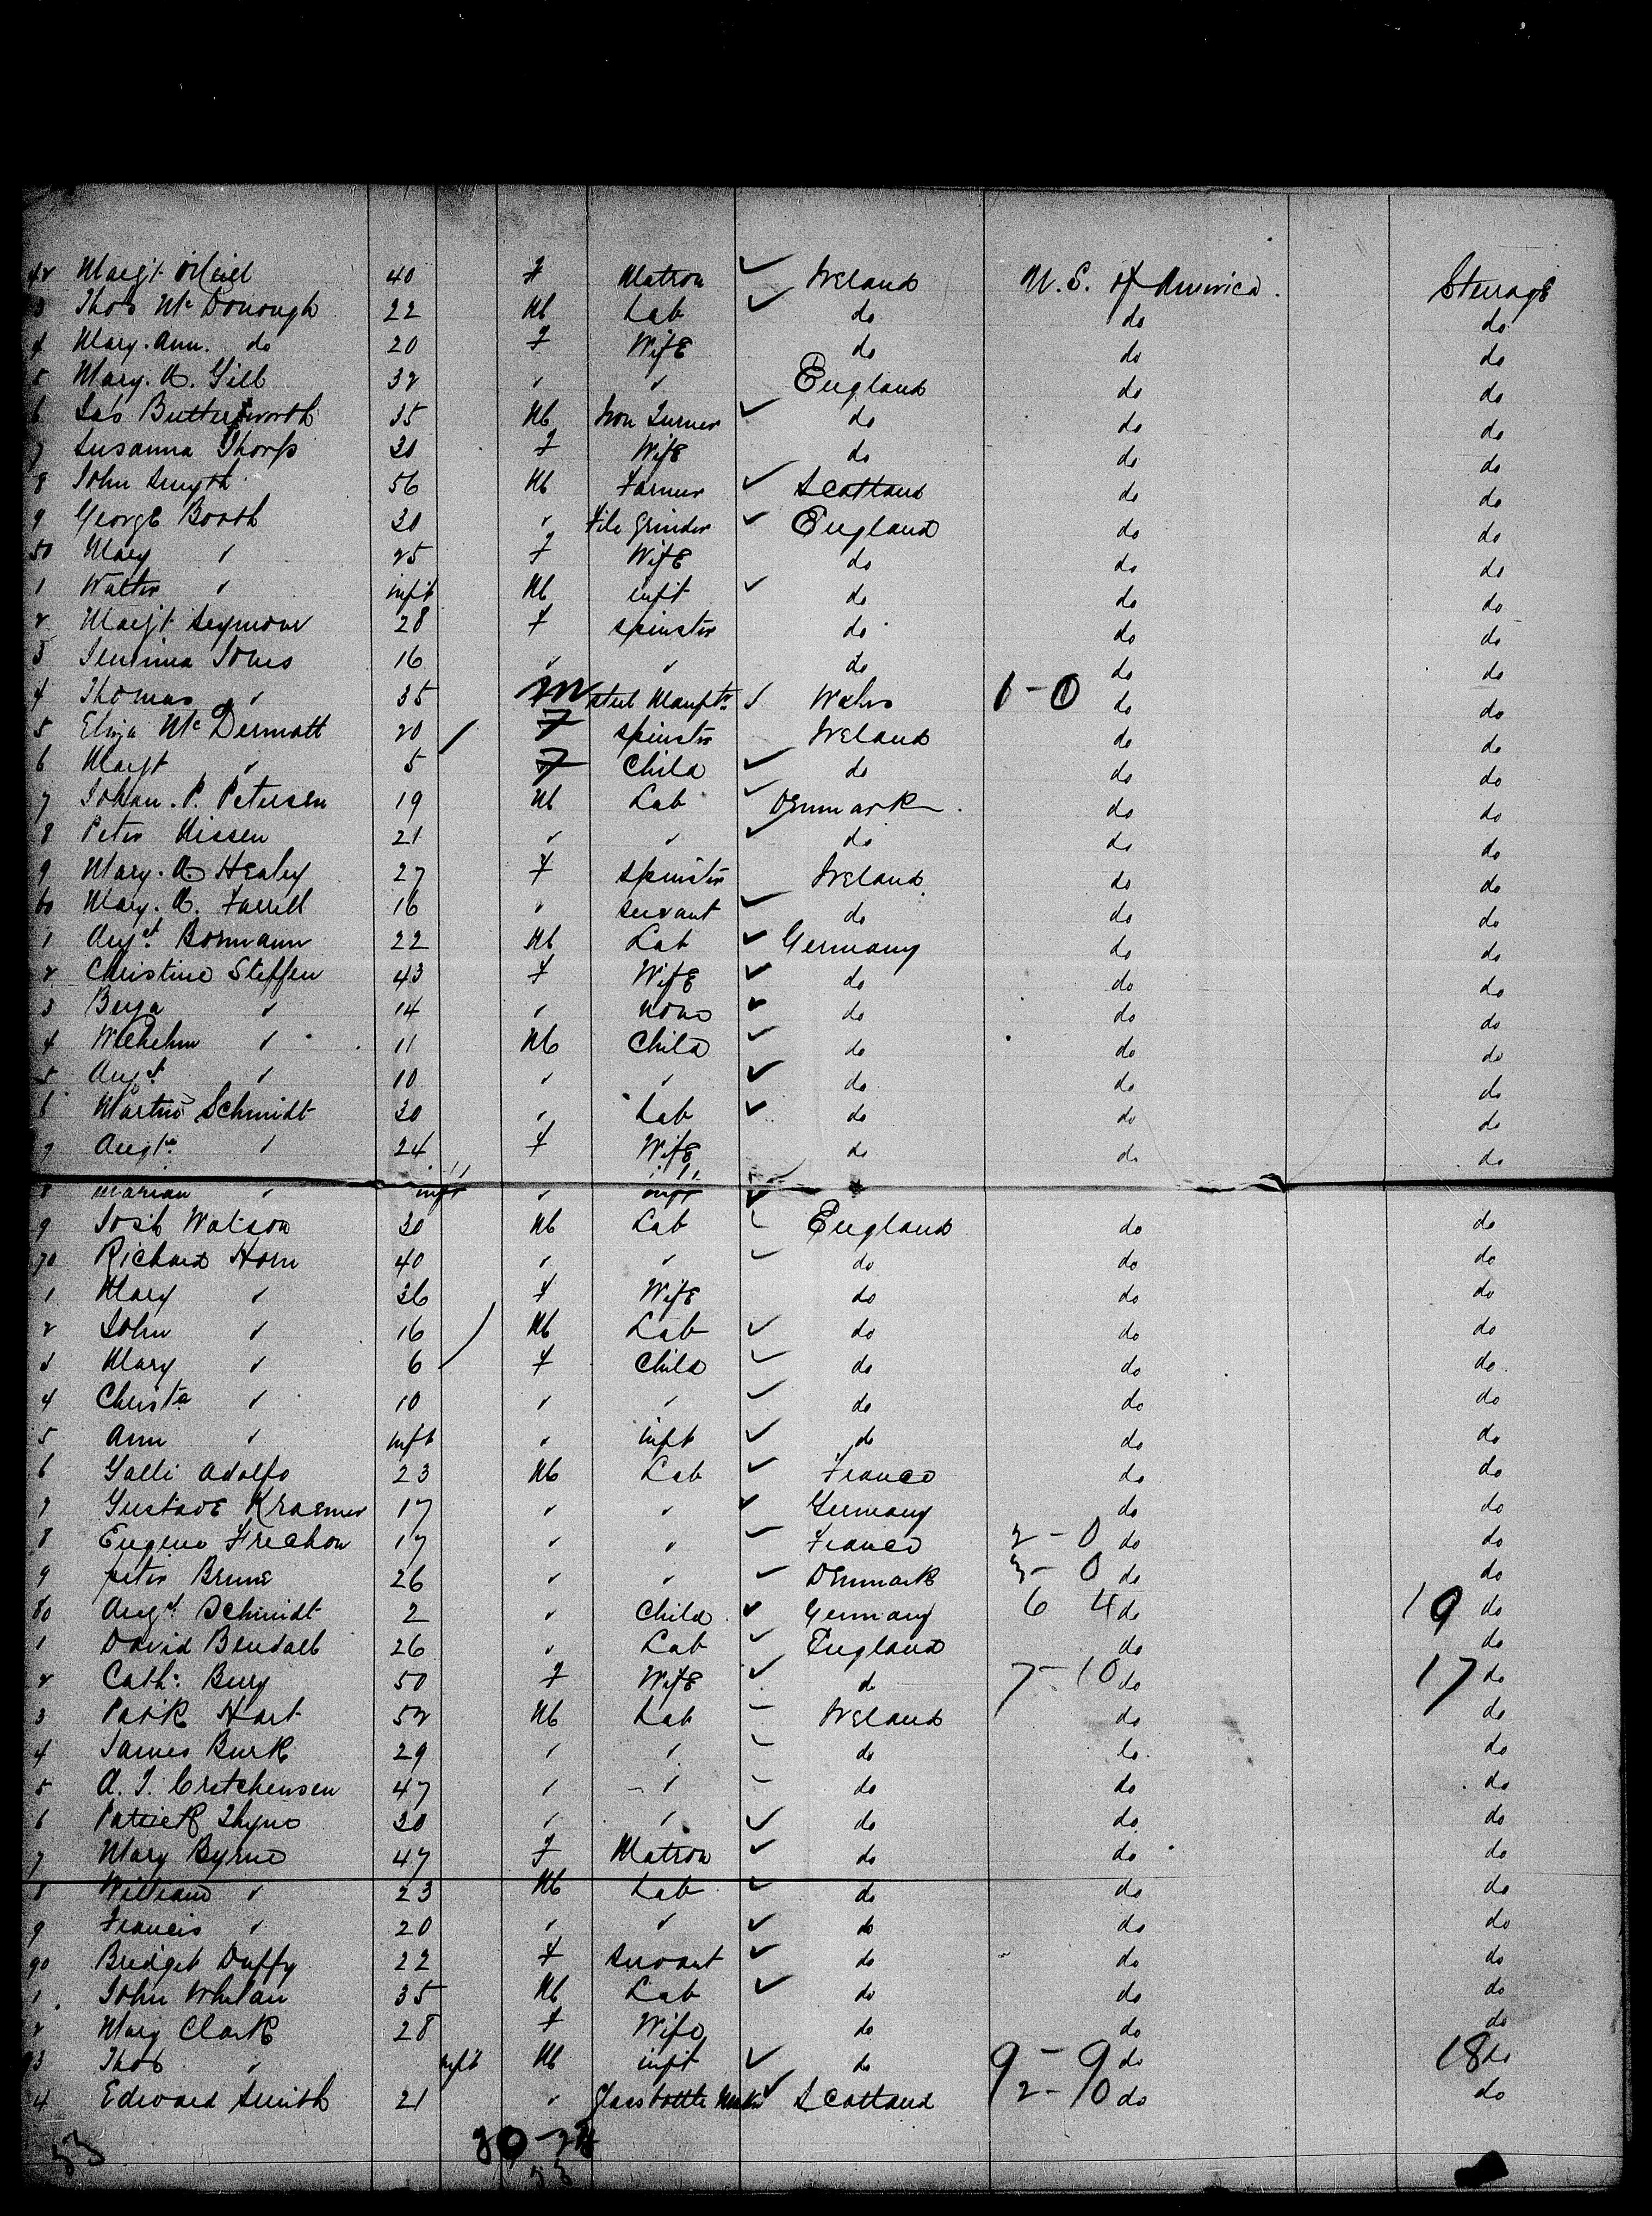 42 Margt O'Neill 40 F Matron ✓ Ireland U.S. of America. Steerage
3 Thos McDonough 22 M Lab ✓ do do do
4 Mary Ann. do 20 F Wife do do do
5 Mary. A. Gill 32 " " England do do
6 Jas Butterworth 35 M Iron Turner ✓ do do do
7 Susanna Thorp 30 F Wife do do do
8 John Smyth 56 M Farmer ✓ Scotland do do
9 George Booth 30 " File Grinder ✓ England do do
50 Mary " 25 F Wife do do do
1 Walter " inft M inft ✓ do do do
2 Margt Seymour 28 F Spinster do do do
3 Jemima Jones 16 " " do do do
4 Thomas " 35 M Steel Manuftr ✓ Wales 1-0 do do
5 Eliza McDermott 20 F Spinster Ireland do do
6 Margt " 5 F Child ✓ do do do
7 Johan. P. Petersen 19 M Lab ✓ Denmark do do
8 Peter Nissen 21 " " ✓ do do do
9 Mary. A. Healey 27 F Spinster Ireland do do
60 Mary. A. Farrell 16 " Servant ✓ do do do
1 Augt Bormann 22 M Lab ✓ Germany do do
2 Christine Steffen 43 F Wife ✓ do do do
3 " 14 " None ✓ do do do
4 Wilhelm " 11 M Child ✓ do do do
5 Augt " 10 " " ✓ do do do
6 Martin Schmidt 30 " Lab ✓ do do do
7 Augta " 24 F Wife do do do
8 Marian " inft " inft ✓
9 Josh Watson 30 M Lab ✓ England do do
70 Richard Horn 40 " " ✓ do do do
1 Mary " 36 F Wife do do do
2 John " 16 M Lab ✓ do do do
3 Mary " 6 F Child ✓ do do do
4 Christa " 10 " " ✓ do do do
5 Ann " inft " inft ✓ do do do
6 Galli Adolfo 23 M Lab ✓ France do do
7 Gustave Kraemer 17 " " ✓ Germany do do
8 Eugene Frechon 17 " " ✓ France 2-0 do do
9 Peter Brune 26 " " ✓ Denmark 3-0 do do
80 Augt Schmidt 2 " Child ✓ Germany 6 4 do 19 do
1 David Bendall 26 " Lab ✓ England do do
2 Cath: Bury 50 F Wife ✓ do 7-10 do 17 do
3 Patk Hart 52 M Lab Ireland do do
4 James Burk 29 " " do do do
5 A. J. Cretchensen 47 " " do do do
6 Patrick Thyne 30 " " ✓ do do do
7 Mary Byrne 47 F Matron ✓ do do do
8 William " 23 M Lab ✓ do do do
9 Francis " 20 " " ✓ do do do
90 Bridget Duffy 22 F Servant ✓ do do do
1 John Whelan 35 M Lab ✓ do do do
2 Mary Clark 28 F Wife do do do
3 Thos " inft M inft ✓ do 9-9 do 18 do
4 Edward Smith 21 " Glass bottle Maker ✓ Scotland 2-10 do do
53
53